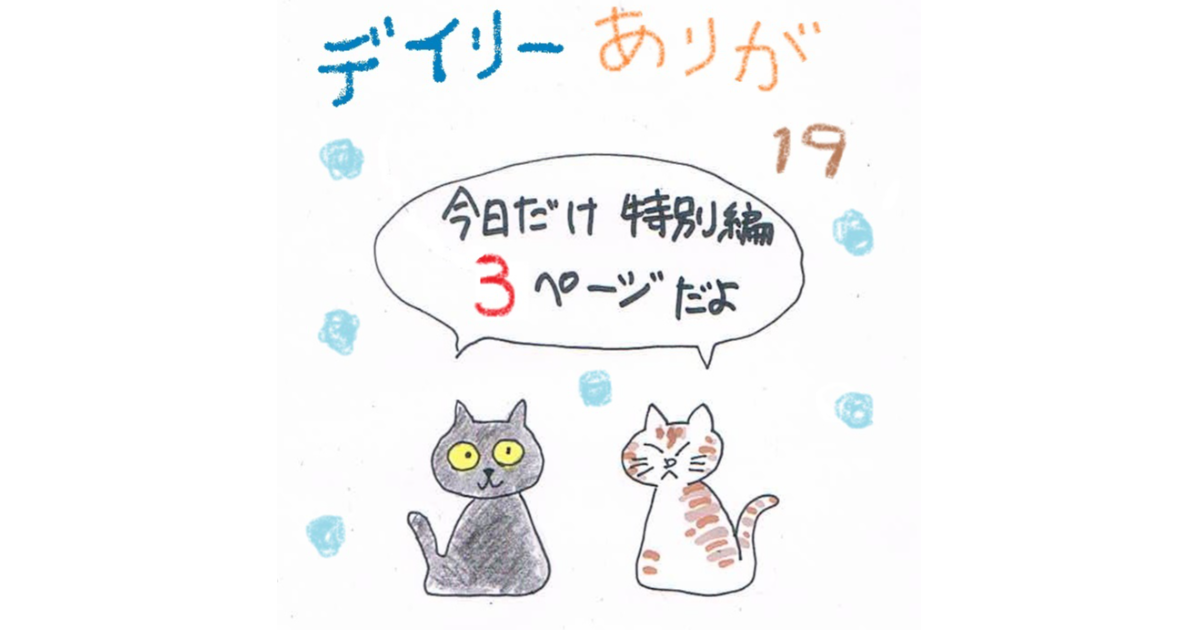 デイリーありが
19
今日だけ 特別編
3ページだよ